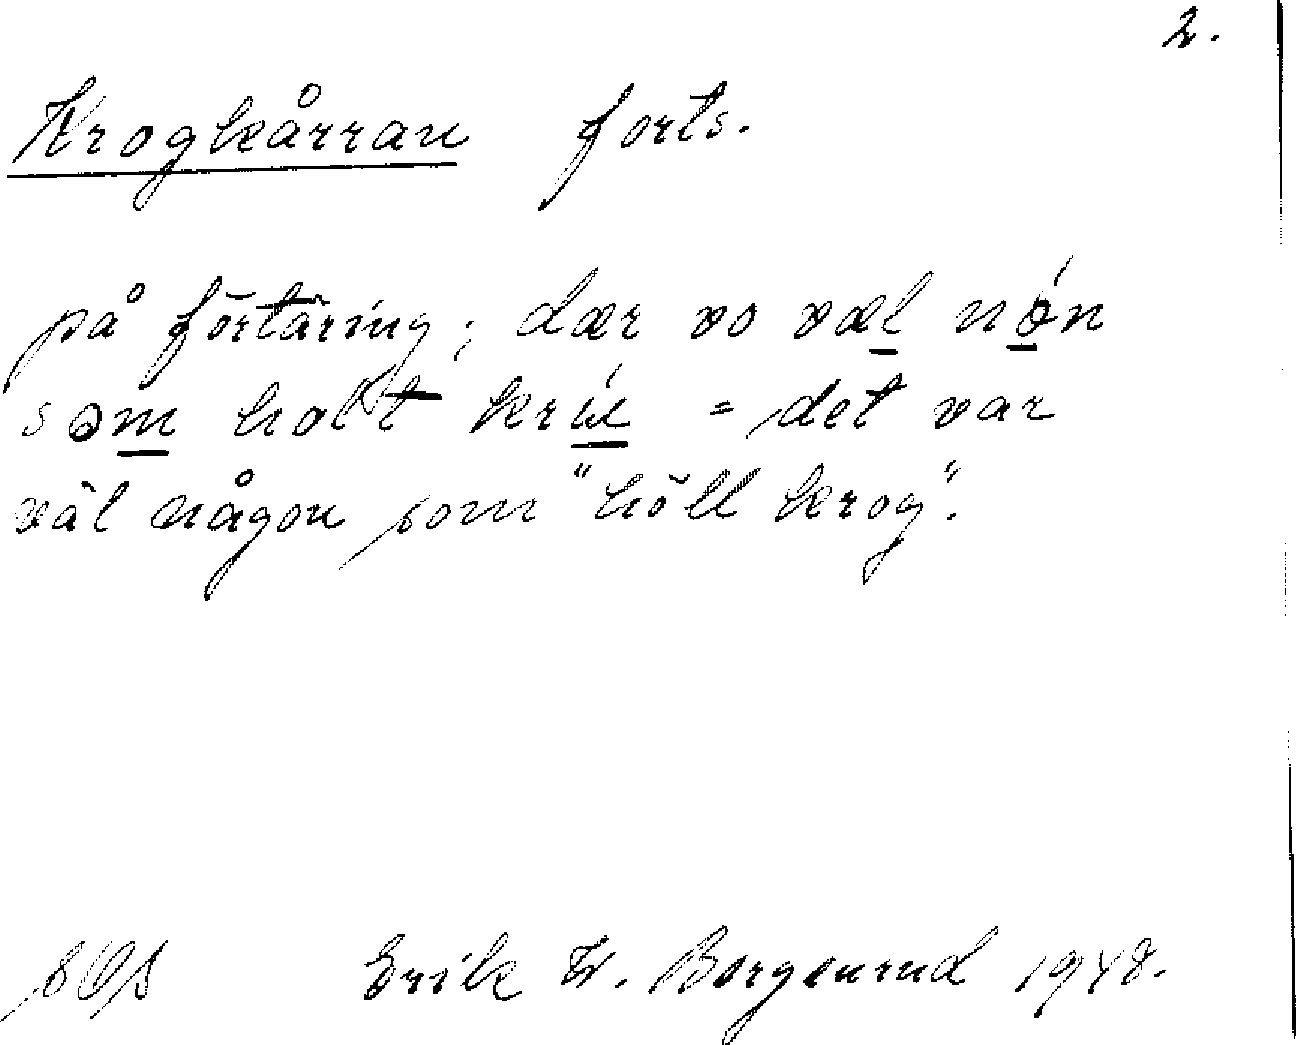 2.
Krogkårran forts.
på förtäring; dær vo væl nón
som holt krú = det var
väl någon som "höll krog".
Erik W. Borgenrud 1948.